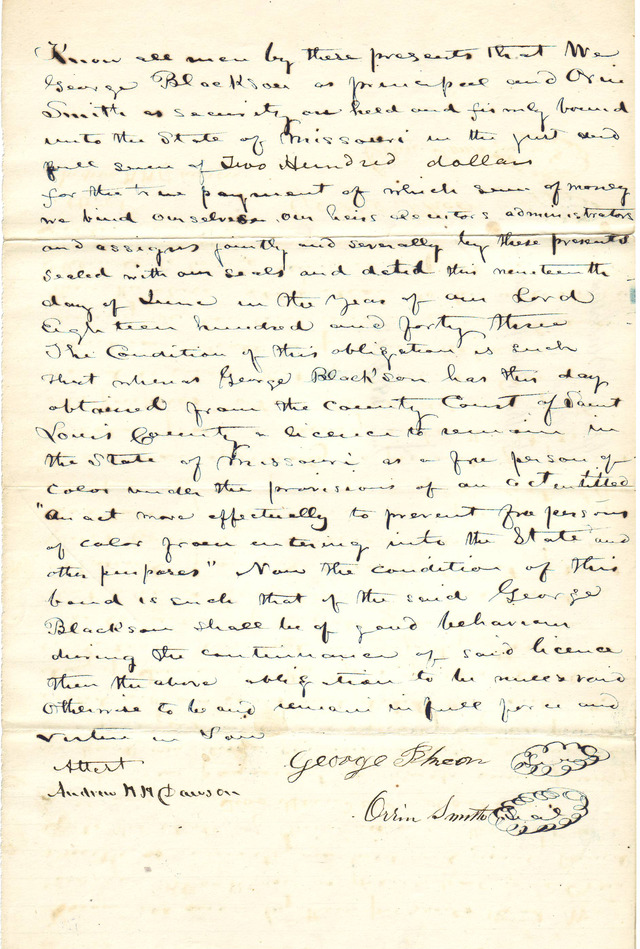 Know all men by these presents that We
George Blackson as principal and Orin
Smith as security are held and firmly bound
unto the State of Missouri in the just and
full sum of Two Hundred dollars
for the true payment of which sum of money
we bind ourselves our heirs executors administrators
and assigns jointly and severally by these presents
sealed with our seals and dated this nineteenth
day of June in the Year of our Lord
Eighteen hundred and forty three
The Condition of this obligation is such
that whereas George Blackson has this day
obtained from the County Court of Saint
Louis County a licence to remain in
the State of Missouri as a free person of
color under the provisions of an act entitled
"an act more effectually to prevent free persons
of color from entering into the State and
other purposes" Now the condition of this
bond is such that if the said George
Blackson shall be of good behaviour
during the continuance of said licence
then the above obligation to be null & void
otherwise to be and remain in full force and
virtue in Law
Attest George Seal
Andrew H Dawson
Orrin Smith Seal